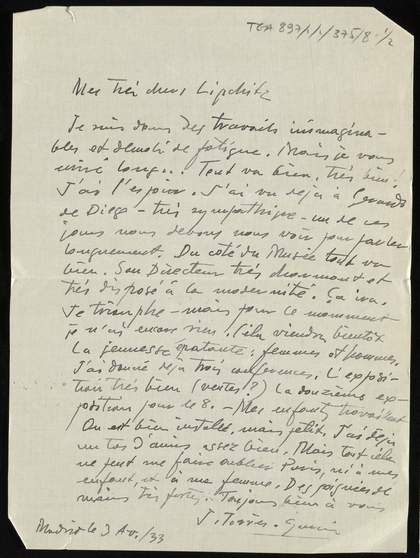 TGA 897/1/1/375/8 1/2
Mes très chers Lipchitz
Je suis dans des travails inimagina-
bles et demoli de fatigue. Mais je vous
long... Tout va bien, très bien!
J'ai l'espoir. J'ai vu dejà à Gerardo
de Diego - très sympathique - un de ces
jours nous debons nous voir pour parler
longuement. Du coté du Musée tout va
bien. Son Directeur très charmant et
très disposé à la modernité. Ça va.
Je triomphe - mais pour ce moment
je n'ai encore rien. Cela viendra bientôt
La jeunesse épatante: femmes et hommes.
J'ai donné dejà trois conferences. L'exposi-
tion très bien (ventes?) La douzième ex-
position pour le 8. - Mes enfants travaillent
On est bien installé, mais petit. J'ai dejà
un tas d'amis assez bien. Mais tout cela
ne peut me faire oublier Paris, ni à mes
enfants, et à ma femme. Des poignées de
mains très fortes. Toujours bien à vous
J. Torres-Garcia
Madrid le 3 Av./33